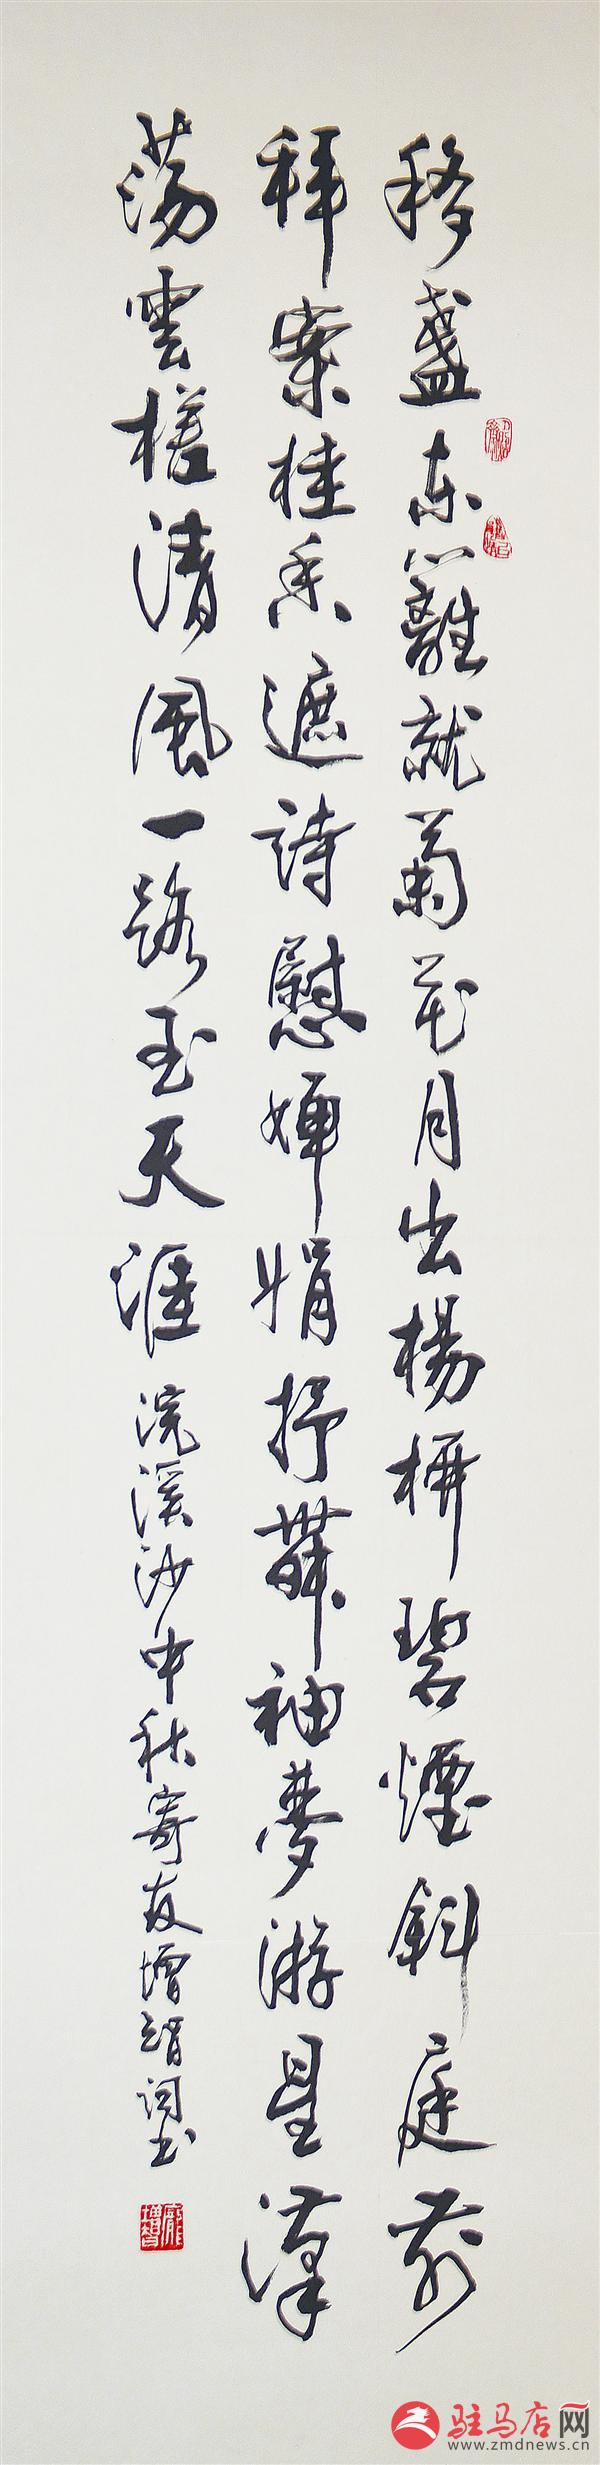 移盏东篱就菊花月出杨栟碧煙斜庭前
拜案桂香遮詩慰婵娟抒舞袖夢游星漢
荡雲槎清風一路玉天涯
浣溪沙中秋寄友增智词书
驻马店网
www.zmdnews.cn